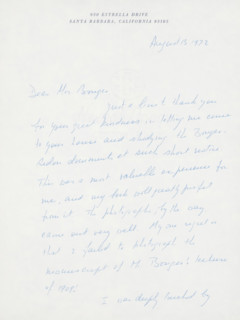 900 ESTRELLA DRIVE
SANTA BARBARA, CALIFORNIA 93105
August 15 1972
Dear Mrs. Bonger
just a line to thank you
for your great kindness in letting me come
to your house and studying the Bonger-
Redon documents at such short notice.
This was a most valuable experience for
me, and my book will greatly profit
from it. The photographs, by the way
came out very well. My one regret is
that I failed to photograph the
manuscript of M. Bonger's
of
I was deeply touched by